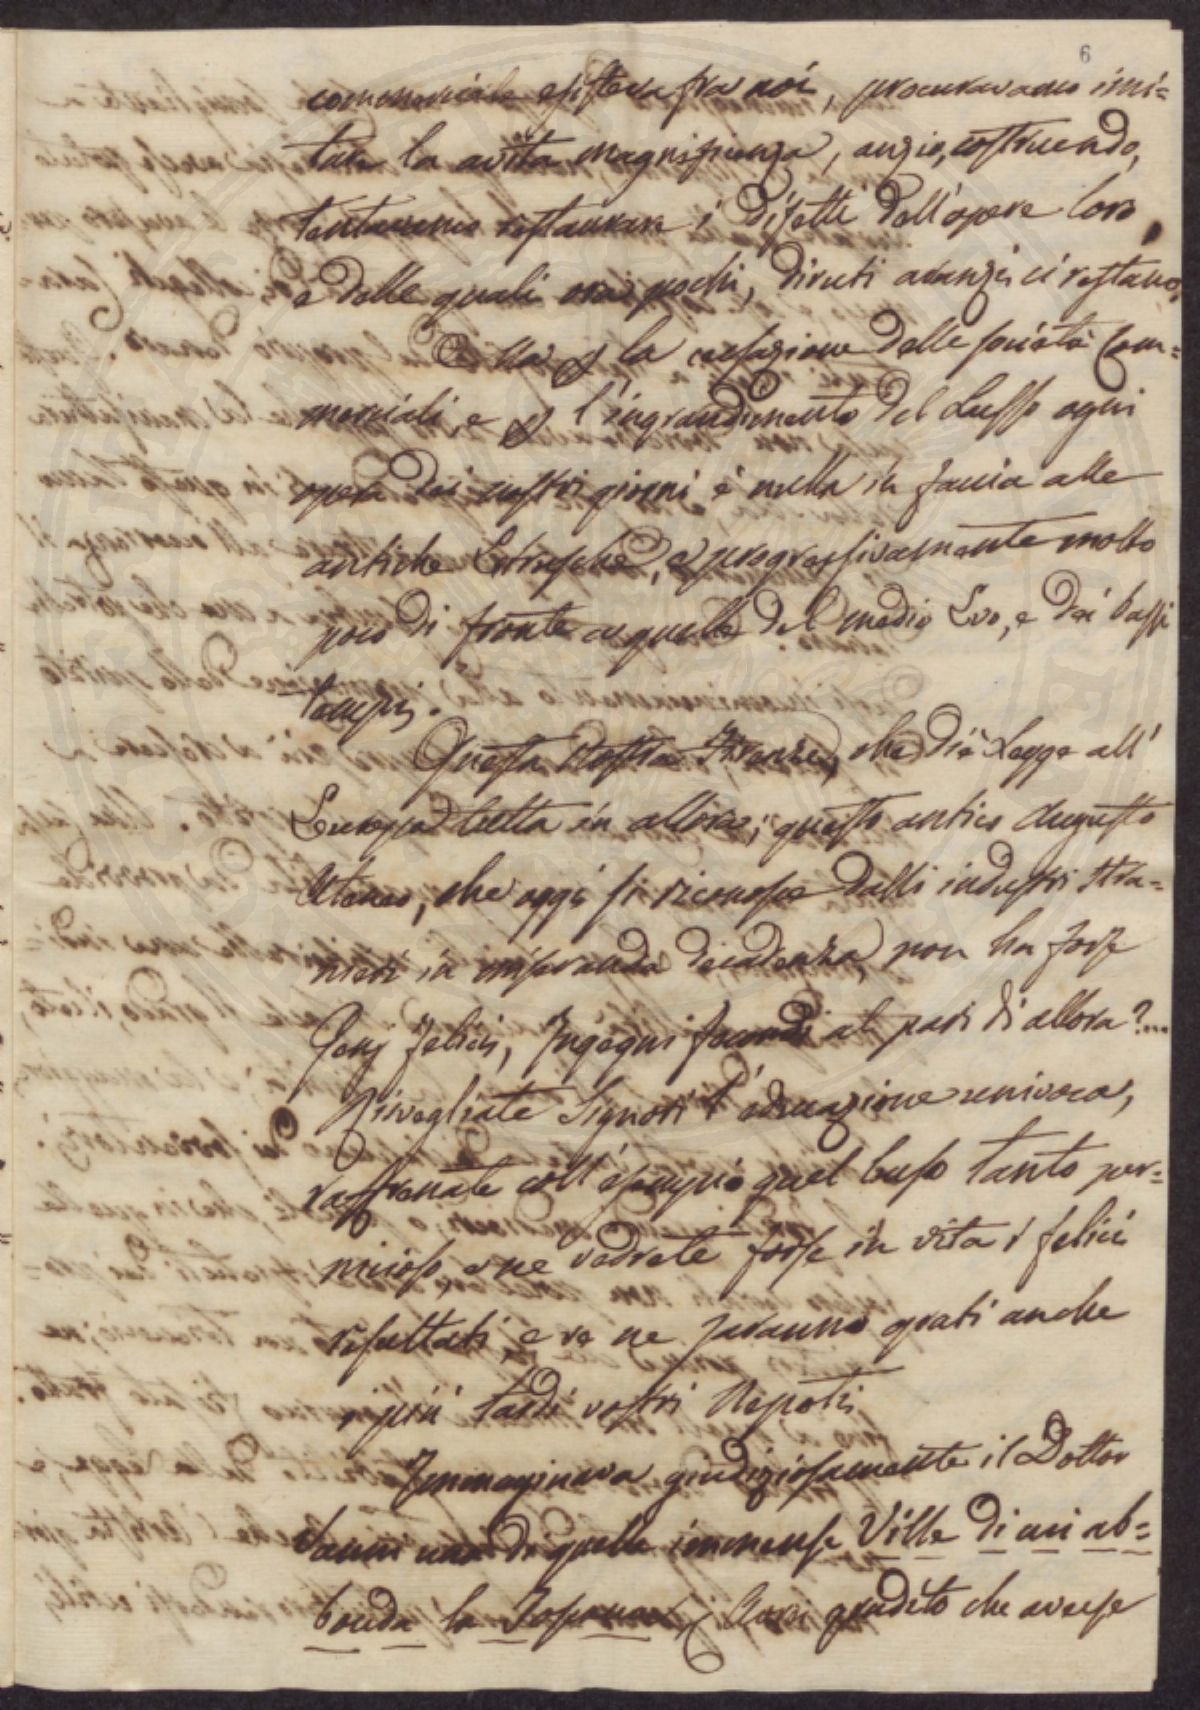 6
commerciale esisteva fra noi, procuravamo imi=
tare la avita magnificenza, anzi, costruendo,
tentavamo restaurare i difetti dell'opere loro
e delle quali ora pochi, diruti avanzi ci restano.
Ma p la cessazione delle società Com=
merciali, e p l'ingrandimento del Lusso ogni
opera dei nostri giorni è nulla in faccia alle
antiche Etrusche, e progressivamente molto
poco di fronte a quelle del medio Evo, e dei bassi
tempi.
Questa nostra Firenze, che diè Legge all'
Europa tutta in allora; questo antico Augusto
Ateneo, che oggi si riconosce dalli industri stra=
nieri in miseranda decadenza, non ha forse
Genj felici, Ingegni fecondi al pari di allora?...
Risvegliate Signori l'educazione univoca,
raffrenate coll'esempio quel lusso tanto per=
nicioso, e ne vedrete forse in vita i felici
resultati, e ve ne saranno grati anche
i più tardi vostri Nepoti.
Immaginava giudiziosamente il Dottor
Vanni una di quelle immense Ville di cui ab=
bonda la Toscana, che avesse